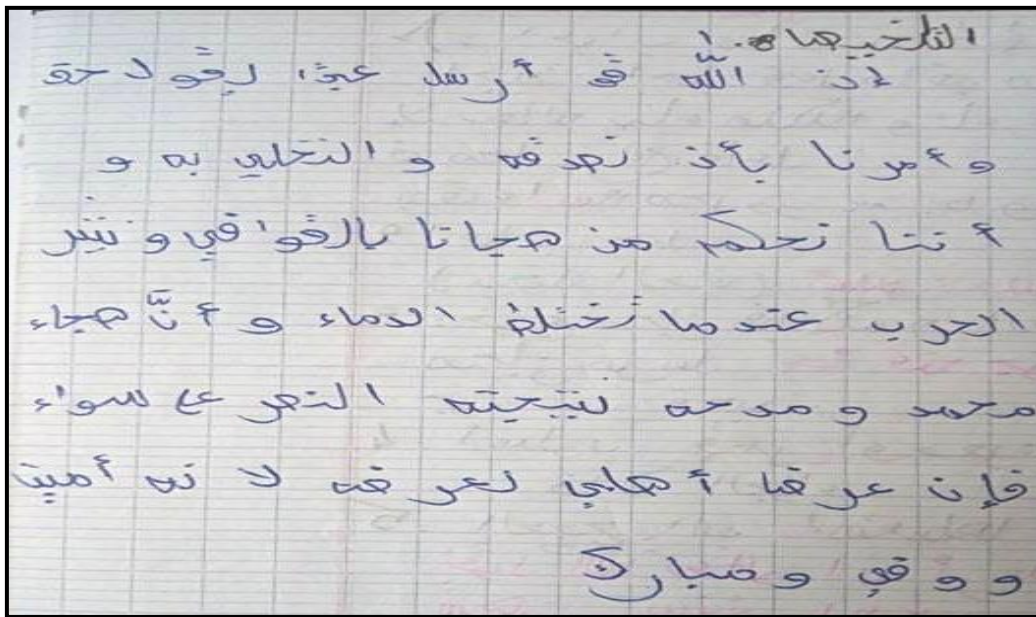 التلخيص:
إن الله قد أرسل عبدا يقول حق
وأمرنا بأن نصدقه والتحلي به و
أننا نحكم من هجانا بالقوافي ونثير
الحرب عندما تختلط الدماء وأنّ هجاء
محمد ومدحه نتيجته النصر على سواء
فإن عرضا أهلي لعرضه لانه أمين
ووفي ومبارك